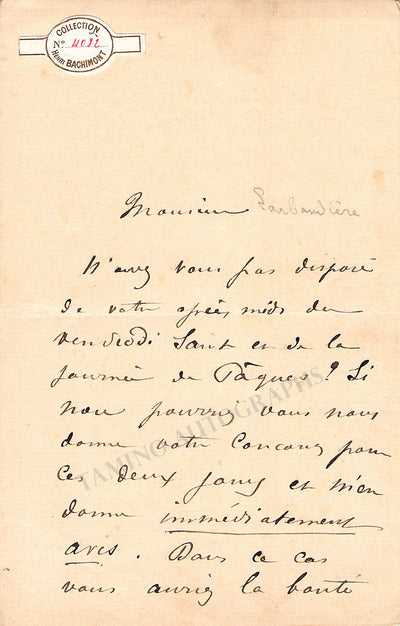 COLLECTION
No 4032
Henri BACHIMONT
Monsieur
N'avez vous pas disposé
de votre après midi du
vendredi Saint et de la
journée de Pâques ? Si
non pourriez vous nous
donner votre concours pour
ces deux jours et m'en
donner immédiatement
avis. Dans ce cas
vous auriez la bonté
TAMINO AUTOGRAPHS